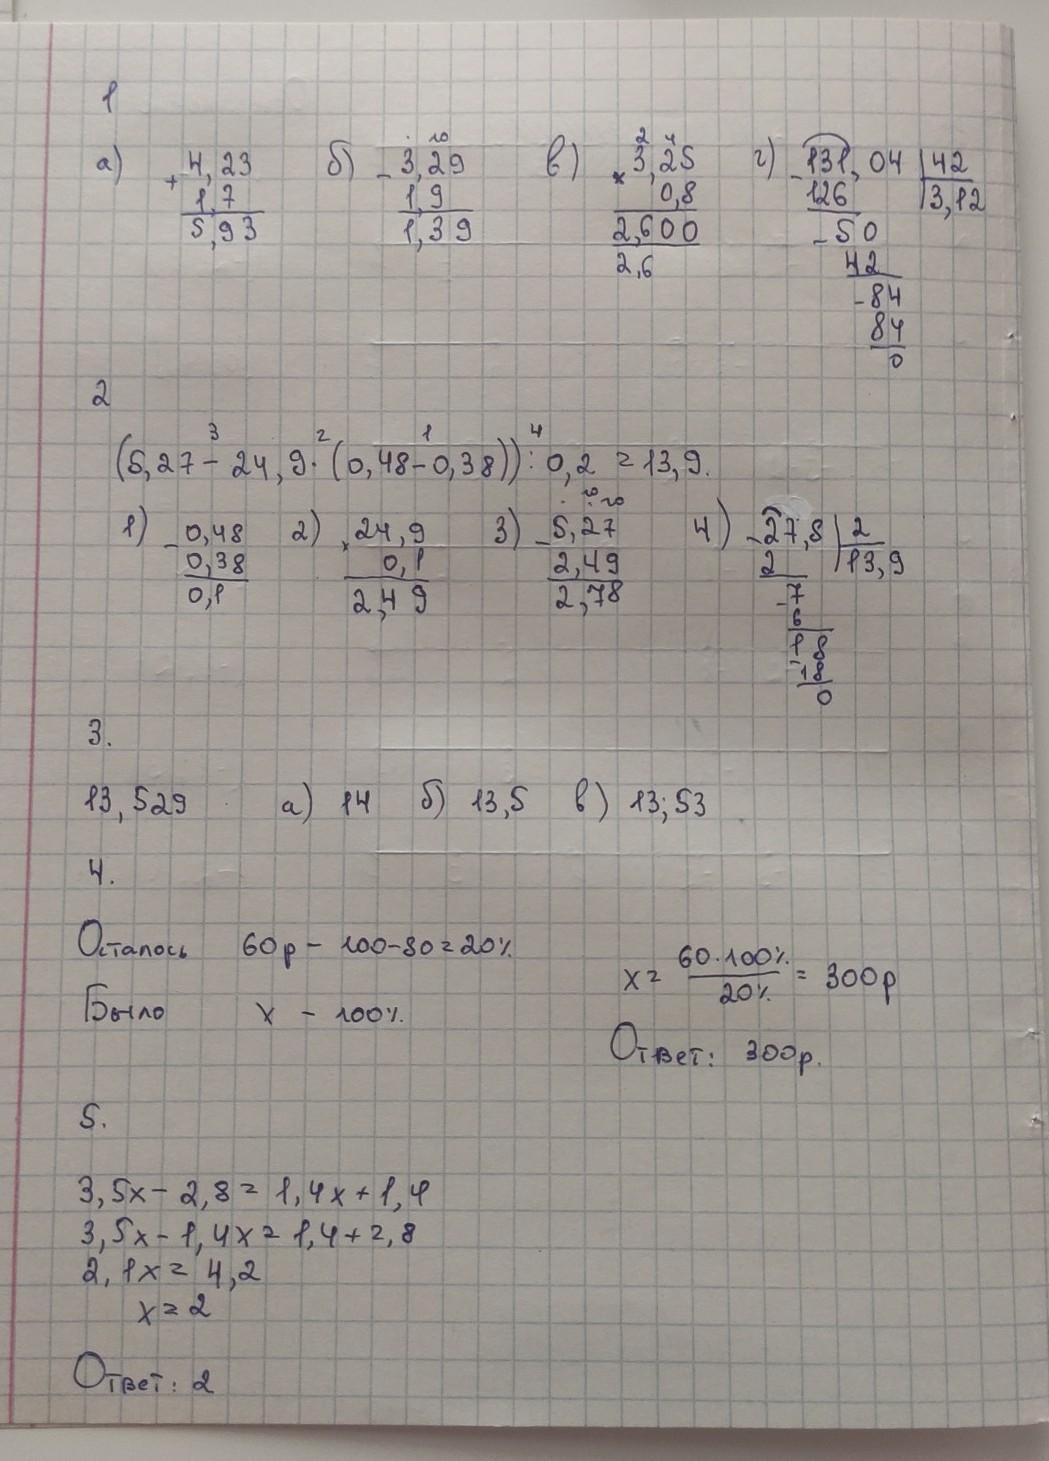 1
а) 4,23 б) 3,29 в) 3,25 г) 131,04 | 42
+ 1,7 - 1,9 × 0,8 - 126 3,12
5,93 1,39 2,600 - 50
2,6 42
- 84
84
0
2
(5,27 - 24,9 · (0,48 - 0,38)) : 0,2 = 13,9.
1) - 0,48 2) × 24,9 3) - 5,27 4) - 27,8 | 2
0,38 0,1 2,49 2 13,9
0,1 2,49 2,78 - 7
6
- 18
18
0
3.
13,529 а) 14 б) 13,5 в) 13,53
4.
Осталось 60р - 100-80=20%
Было x - 100%.
x = 60·100% / 20% = 300р
Ответ: 300р.
5.
3,5x - 2,8 = 1,4x + 1,4
3,5x - 1,4x = 1,4 + 2,8
2,1x = 4,2
x = 2
Ответ: 2